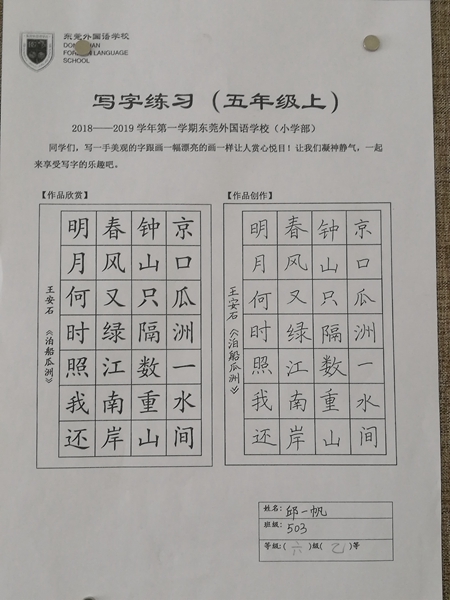 东莞外国语学校
LANGUAGE
SCHOOL
写字练习（五年级上）
2018——2019 学年第一学期东莞外国语学校（小学部）
同学们，写一手美观的字跟画一幅漂亮的画一样让人赏心悦目！让我们凝神静气，一起
来享受写字的乐趣吧。
【作品欣赏】
京口瓜洲一水间
钟山只隔数重山
春风又绿江南岸
明月何时照我还
王安石《泊船瓜洲》
【作品创作】
京口瓜洲一水间
钟山只隔数重山
春风又绿江南岸
明月何时照我还
王安石《泊船瓜洲》
姓名：邱一帆
班级：503
等级：（六）级（乙）等